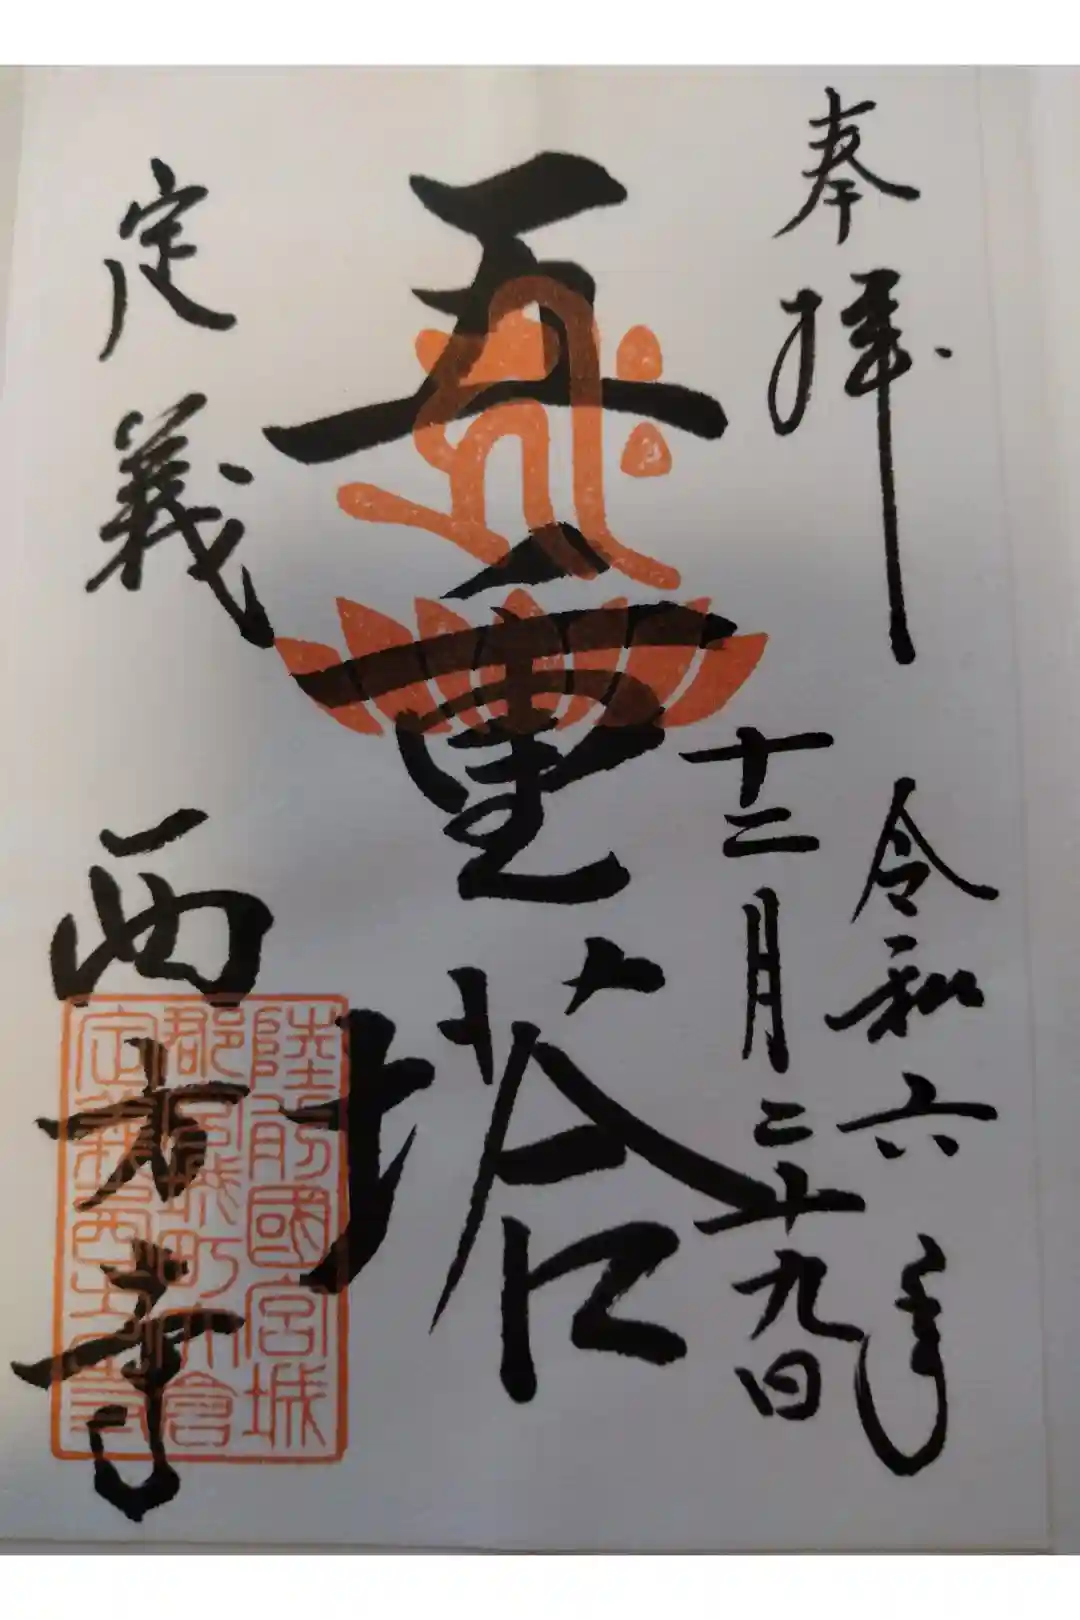 奉拝
令和六年
十二月二十九日
五重塔
定義
西方寺
陸前國宮城
郡宮城町大倉
定義西方寺